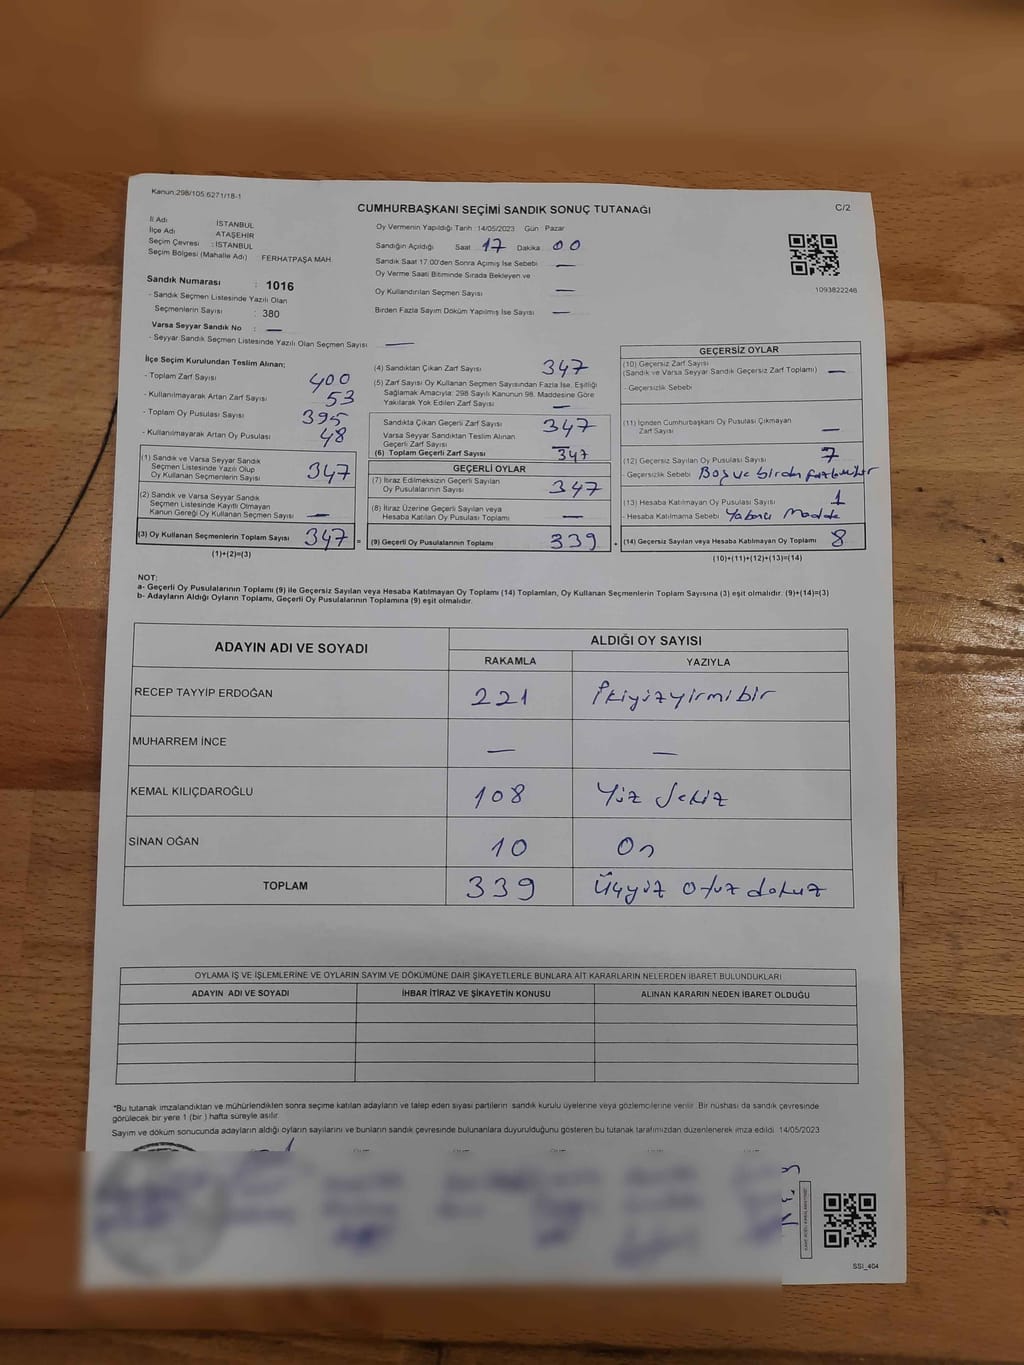 Kanun:298/105.6271/18-1
CUMHURBAŞKANI SEÇİMİ SANDIK SONUÇ TUTANAĞI
C/2
İl Adı İSTANBUL
İlçe Adı ATAŞEHİR
Seçim Çevresi : İSTANBUL
Seçim Bölgesi (Mahalle Adı) FERHATPAŞA MAH.
Sandık Numarası : 1016
- Sandık Seçmen Listesinde Yazılı Olan
Seçmenlerin Sayısı : 380
Varsa Seyyar Sandık No : —
- Seyyar Sandık Seçmen Listesinde Yazılı Olan Seçmen Sayısı —
Oy Vermenin Yapıldığı Tarih :14/05/2023 Gün : Pazar
Sandığın Açıldığı Saat 17 Dakika : 00
Sandık Saat 17.00'den Sonra Açımış İse Sebebi —
Oy Verme Saati Bitiminde Sırada Bekleyen ve
Oy Kullandırılan Seçmen Sayısı —
Birden Fazla Sayım Döküm Yapılmış İse Sayısı —
1093822246
İlçe Seçim Kurulundan Teslim Alınan;
- Toplam Zarf Sayısı 400
- Kullanılmayarak Artan Zarf Sayısı 53
- Toplam Oy Pusulası Sayısı 395
- Kullanılmayarak Artan Oy Pusulası 48
(1) Sandık ve Varsa Seyyar Sandık
Seçmen Listesinde Yazılı Olup
Oy Kullanan Seçmenlerin Sayısı 347
(2) Sandık ve Varsa Seyyar Sandık
Seçmen Listesinde Kayıtlı Olmayan
Kanun Gereği Oy Kullanan Seçmen Sayısı —
(3) Oy Kullanan Seçmenlerin Toplam Sayısı 347
(1)+(2)=(3)
(4) Sandıktan Çıkan Zarf Sayısı 347
(5) Zarf Sayısı Oy Kullanan Seçmen Sayısından Fazla İse, Eşitliği
Sağlamak Amacıyla; 298 Sayılı Kanunun 98. Maddesine Göre
Yakılarak Yok Edilen Zarf Sayısı —
Sandıkta Çıkan Geçerli Zarf Sayısı 347
Varsa Seyyar Sandıktan Teslim Alınan
Geçerli Zarf Sayısı —
(6) Toplam Geçerli Zarf Sayısı 347
GEÇERLİ OYLAR
(7) İtiraz Edilmeksizin Geçerli Sayılan
Oy Pusulalarının Sayısı 347
(8) İtiraz Üzerine Geçerli Sayılan veya
Hesaba Katılan Oy Pusulası Toplamı —
= (9) Geçerli Oy Pusulalarının Toplamı 339
GEÇERSİZ OYLAR
(10) Geçersiz Zarf Sayısı
(Sandık ve Varsa Seyyar Sandık Geçersiz Zarf Toplamı) —
- Geçersizlik Sebebi
(11) İçinden Cumhurbaşkanı Oy Pusulası Çıkmayan
Zarf Sayısı —
(12) Geçersiz Sayılan Oy Pusulası Sayısı 7
- Geçersizlik Sebebi Boş ve birden fazla
(13) Hesaba Katılmayan Oy Pusulası Sayısı 1
- Hesaba Katılmama Sebebi Yabancı Madde
+ (14) Geçersiz Sayılan veya Hesaba Katılmayan Oy Toplamı 8
(10)+(11)+(12)+(13)=(14)
NOT;
a- Geçerli Oy Pusulalarının Toplamı (9) ile Geçersiz Sayılan veya Hesaba Katılmayan Oy Toplamı (14) Toplamları, Oy Kullanan Seçmenlerin Toplam Sayısına (3) eşit olmalıdır. (9)+(14)=(3)
b- Adayların Aldığı Oyların Toplamı, Geçerli Oy Pusulalarının Toplamına (9) eşit olmalıdır.
ADAYIN ADI VE SOYADI ALDIĞI OY SAYISI
RAKAMLA YAZIYLA
RECEP TAYYİP ERDOĞAN 221 İkiyüzyirmibir
MUHARREM İNCE — —
KEMAL KILIÇDAROĞLU 108 Yüz Sekiz
SİNAN OĞAN 10 On
TOPLAM 339 Üçyüz otuz dokuz
OYLAMA İŞ VE İŞLEMLERİNE VE OYLARIN SAYIM VE DÖKÜMÜNE DAİR ŞİKAYETLERLE BUNLARA AİT KARARLARIN NELERDEN İBARET BULUNDUKLARI
ADAYIN ADI VE SOYADI İHBAR İTİRAZ VE ŞİKAYETİN KONUSU ALINAN KARARIN NEDEN İBARET OLDUĞU
*Bu tutanak imzalandıktan ve mühürlendikten sonra seçime katılan adayların ve talep eden siyasi partilerin sandık kurulu üyelerine veya gözlemcilerine verilir. Bir nüshası da sandık çevresinde
görülecek bir yere 1 (bir ) hafta süreyle asılır.
Sayım ve döküm sonucunda adayların aldığı oyların sayılarını ve bunların sandık çevresinde bulunanlara duyurulduğunu gösteren bu tutanak tarafımızdan düzenlenerek imza edildi. 14/05/2023
SSI_404